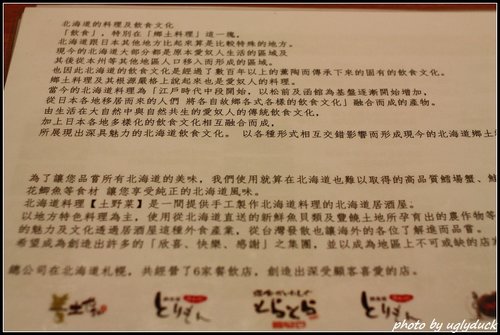 北海道的料理及飲食文化
「飲食」，特別在「鄉土料理」這一塊，
北海道跟日本其他地方比起來算是比較特殊的地方。
現今的北海道大部分都是原本愛奴人生活的區域及
其後從本州等其他地區人口移入而形成的區域。
也因此北海道的飲食文化是經過了數百年以上的薰陶而傳承下來的固有的飲食文化。
鄉土料理及其根源嚴格上說起來也是愛奴人的料理。
當今的北海道料理為「江戶時代中段開始，以松前及函館為基盤逐漸開始增加，
從日本各地移居而來的人們 將各自故鄉各式各樣的飲食文化」融合而成的產物。
由生活在大自然中與自然共生的愛奴人的傳統飲食文化，
加上日本各地多樣化的飲食文化相互融合而成，
所展現出深具魅力的北海道飲食文化。 以各種形式相互交錯影響而形成現今的北海道鄉土
為了讓您品嘗所有北海道的美味，我們使用就算在北海道也難以取得的高品質鱈場蟹、鮭
花鯽魚等食材 讓您享受純正的北海道風味。
北海道料理【土野菜】是一間提供手工製作北海道料理的北海道居酒屋。
以地方特色料理為主，使用從北海道直送的新鮮魚貝類及豐饒土地所孕育出的農作物等
的魅力及文化透過居酒屋這種外食產業，從台灣發散也讓海外的各位了解進而品嘗。
希望成為創造出許多的「欣喜、快樂、感謝」之集團，並以成為地區上不可或缺的店
總公司在北海道札幌，共經營了6家餐飲店，創造出深受顧客喜愛的店。
とりもん
とらとら
とりもん
photo by uglyduck